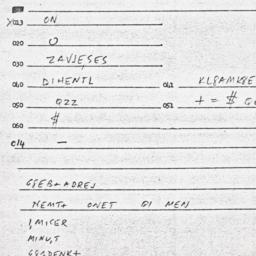 013 ON
020 U
030 ZAVJESES
040 DIHENTL 042 KLGAMKGE
050 QZZ 052 + = $
060 $
c/4 —
GSEB+ADREJ
NEMT+ ONET QI MEN
MICER
MINU,T
GGRDENK+